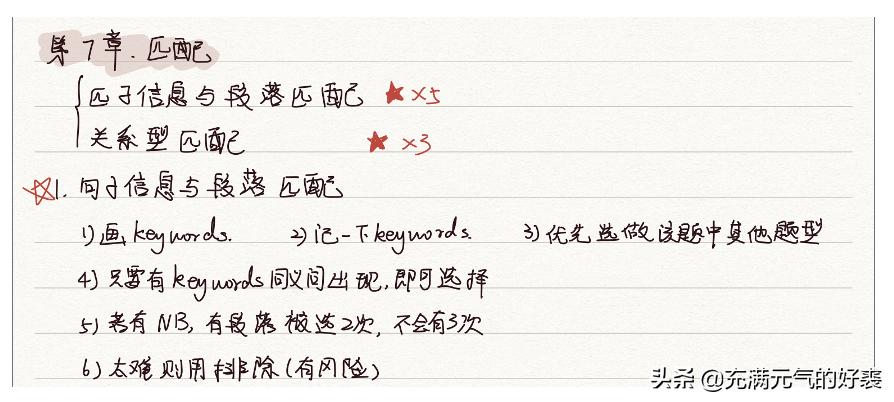 第7章.匹配
匹子信息与段落匹配 ★×5
关系型匹配 ★×3
☆1.句子信息与段落匹配
1)画keywords. 2)记一下keywords. 3)优先选做该题中其他题型
4)只要有keywords同义间出现,即可选择
5)若有NB,有段落被选2次,不会有3次
6)太难则用排除(有风险)
头条@充满元气的好裴